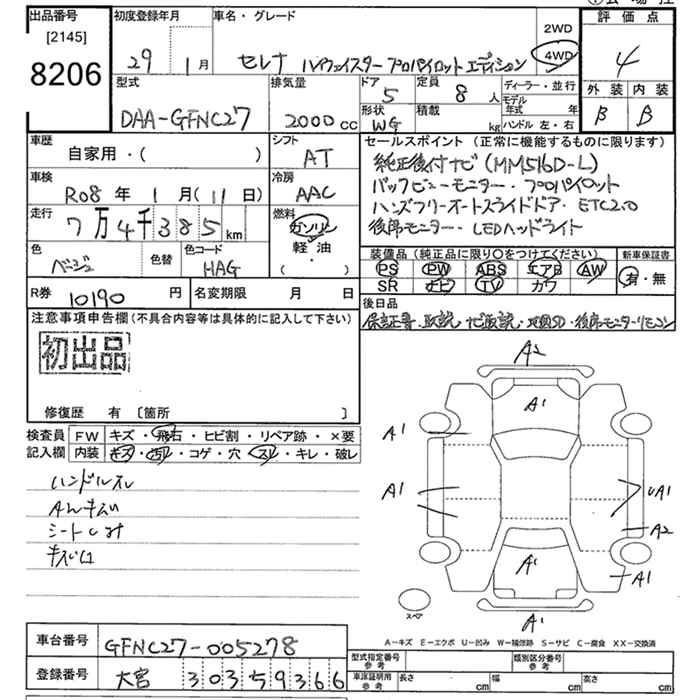 出品番号
[2145]
8206
初度登録年月
29 1月
車名・グレード
セレナ ハイウェイスター プロパイロット エディション
2WD
4WD
評価点
4
外装 内装
B B
型式
DAA-GFNC27
排気量
2000 cc
ドア
5
定員
8 人
形状
WG
積載
kg
ディーラー・並行
モデル年式 年
ハンドル 左・右
車歴
自家用・( )
シフト
AT
車検
R08 年 1 月 (11 日)
冷房
AAC
走行
7万4千385 km
燃料
ガソリン
軽・油
( )
色
ベージュ
色替
色コード
HAG
R券
10190 円
名変期限 月 日
セールスポイント (正常に機能するものに限ります)
純正後付ナビ (MM516D-L)
バックビューモニター・プロパイロット
ハンズフリーオートスライドドア・ETC2.0
後席モニター・LEDヘッドライト
装備品 (純正品に限り○をつけてください)
PS PW ABS エアB AW
SR ナビ TV カワ
新車保証書
有・無
後日品
保証書・取説・ナビ取説・地図SD・後席モニターリモコン
注意事項申告欄 (不具合内容等は具体的に記入して下さい)
初出品
修復歴 有 [箇所 ]
検査員記入欄
FW キズ・飛石・ヒビ割・リペア跡・×要
内装 キズ・汚れ・コゲ・穴・スレ・キレ・破レ
ハンドルスレ
シートしみ
A2
A1
A1
A1
A1
UA1
A2
A1
A1
A1
スペア
A-キズ E-エクボ U-凹み W-補修跡 S-サビ C-腐食 XX-交換済
車台番号
GFNC27-005278
登録番号
大宮 303ち9366
型式指定番号 参考
類別区分番号 参考
車庫証明用 参考
長さ cm
幅 cm
高さ cm